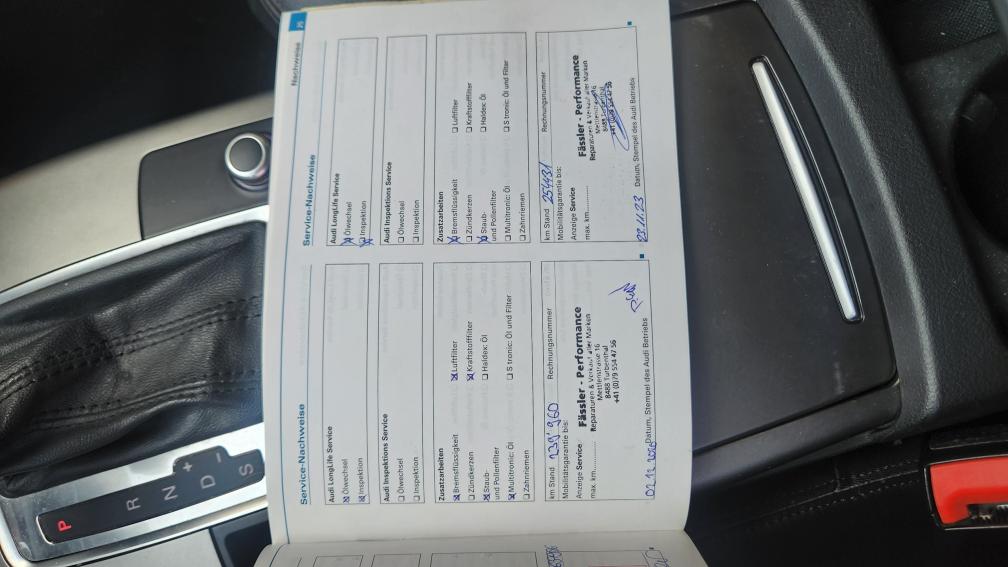 Service-Nachweise
Audi LongLife Service
☒ Ölwechsel
☒ Inspektion
Audi Inspektions Service
☐ Ölwechsel
☐ Inspektion
Zusatzarbeiten
☒ Bremsflüssigkeit ☒ Luftfilter
☐ Zündkerzen ☒ Kraftstofffilter
☒ Staub- ☐ Haldex: Öl
und Pollenfilter
☒ Multitronic: Öl ☐ S tronic: Öl und Filter
☐ Zahnriemen
km Stand 239'960 Rechnungsnummer
Mobilitätsgarantie bis:
Anzeige Service:
max. km
Fässler - Performance
Reparaturen & Verkauf aller Marken
Mettlenstrasse 16
8488 Turbenthal
+41 (0)79 554 47 56
Datum, Stempel des Audi Betriebs
Service-Nachweise
Nachweise 25
Audi LongLife Service
☒ Ölwechsel
☒ Inspektion
Audi Inspektions Service
☐ Ölwechsel
☐ Inspektion
Zusatzarbeiten
☒ Bremsflüssigkeit ☐ Luftfilter
☐ Zündkerzen ☐ Kraftstofffilter
☒ Staub- ☐ Haldex: Öl
und Pollenfilter
☐ Multitronic: Öl ☐ S tronic: Öl und Filter
☐ Zahnriemen
km Stand 254431 Rechnungsnummer
Mobilitätsgarantie bis:
Anzeige Service
max. km
Fässler - Performance
Reparaturen & Verkauf aller Marken
Mettlenstrasse 16
8488 Turbenthal
23.11.23 Datum, Stempel des Audi Betriebs
P
R
N
D
+
−
S